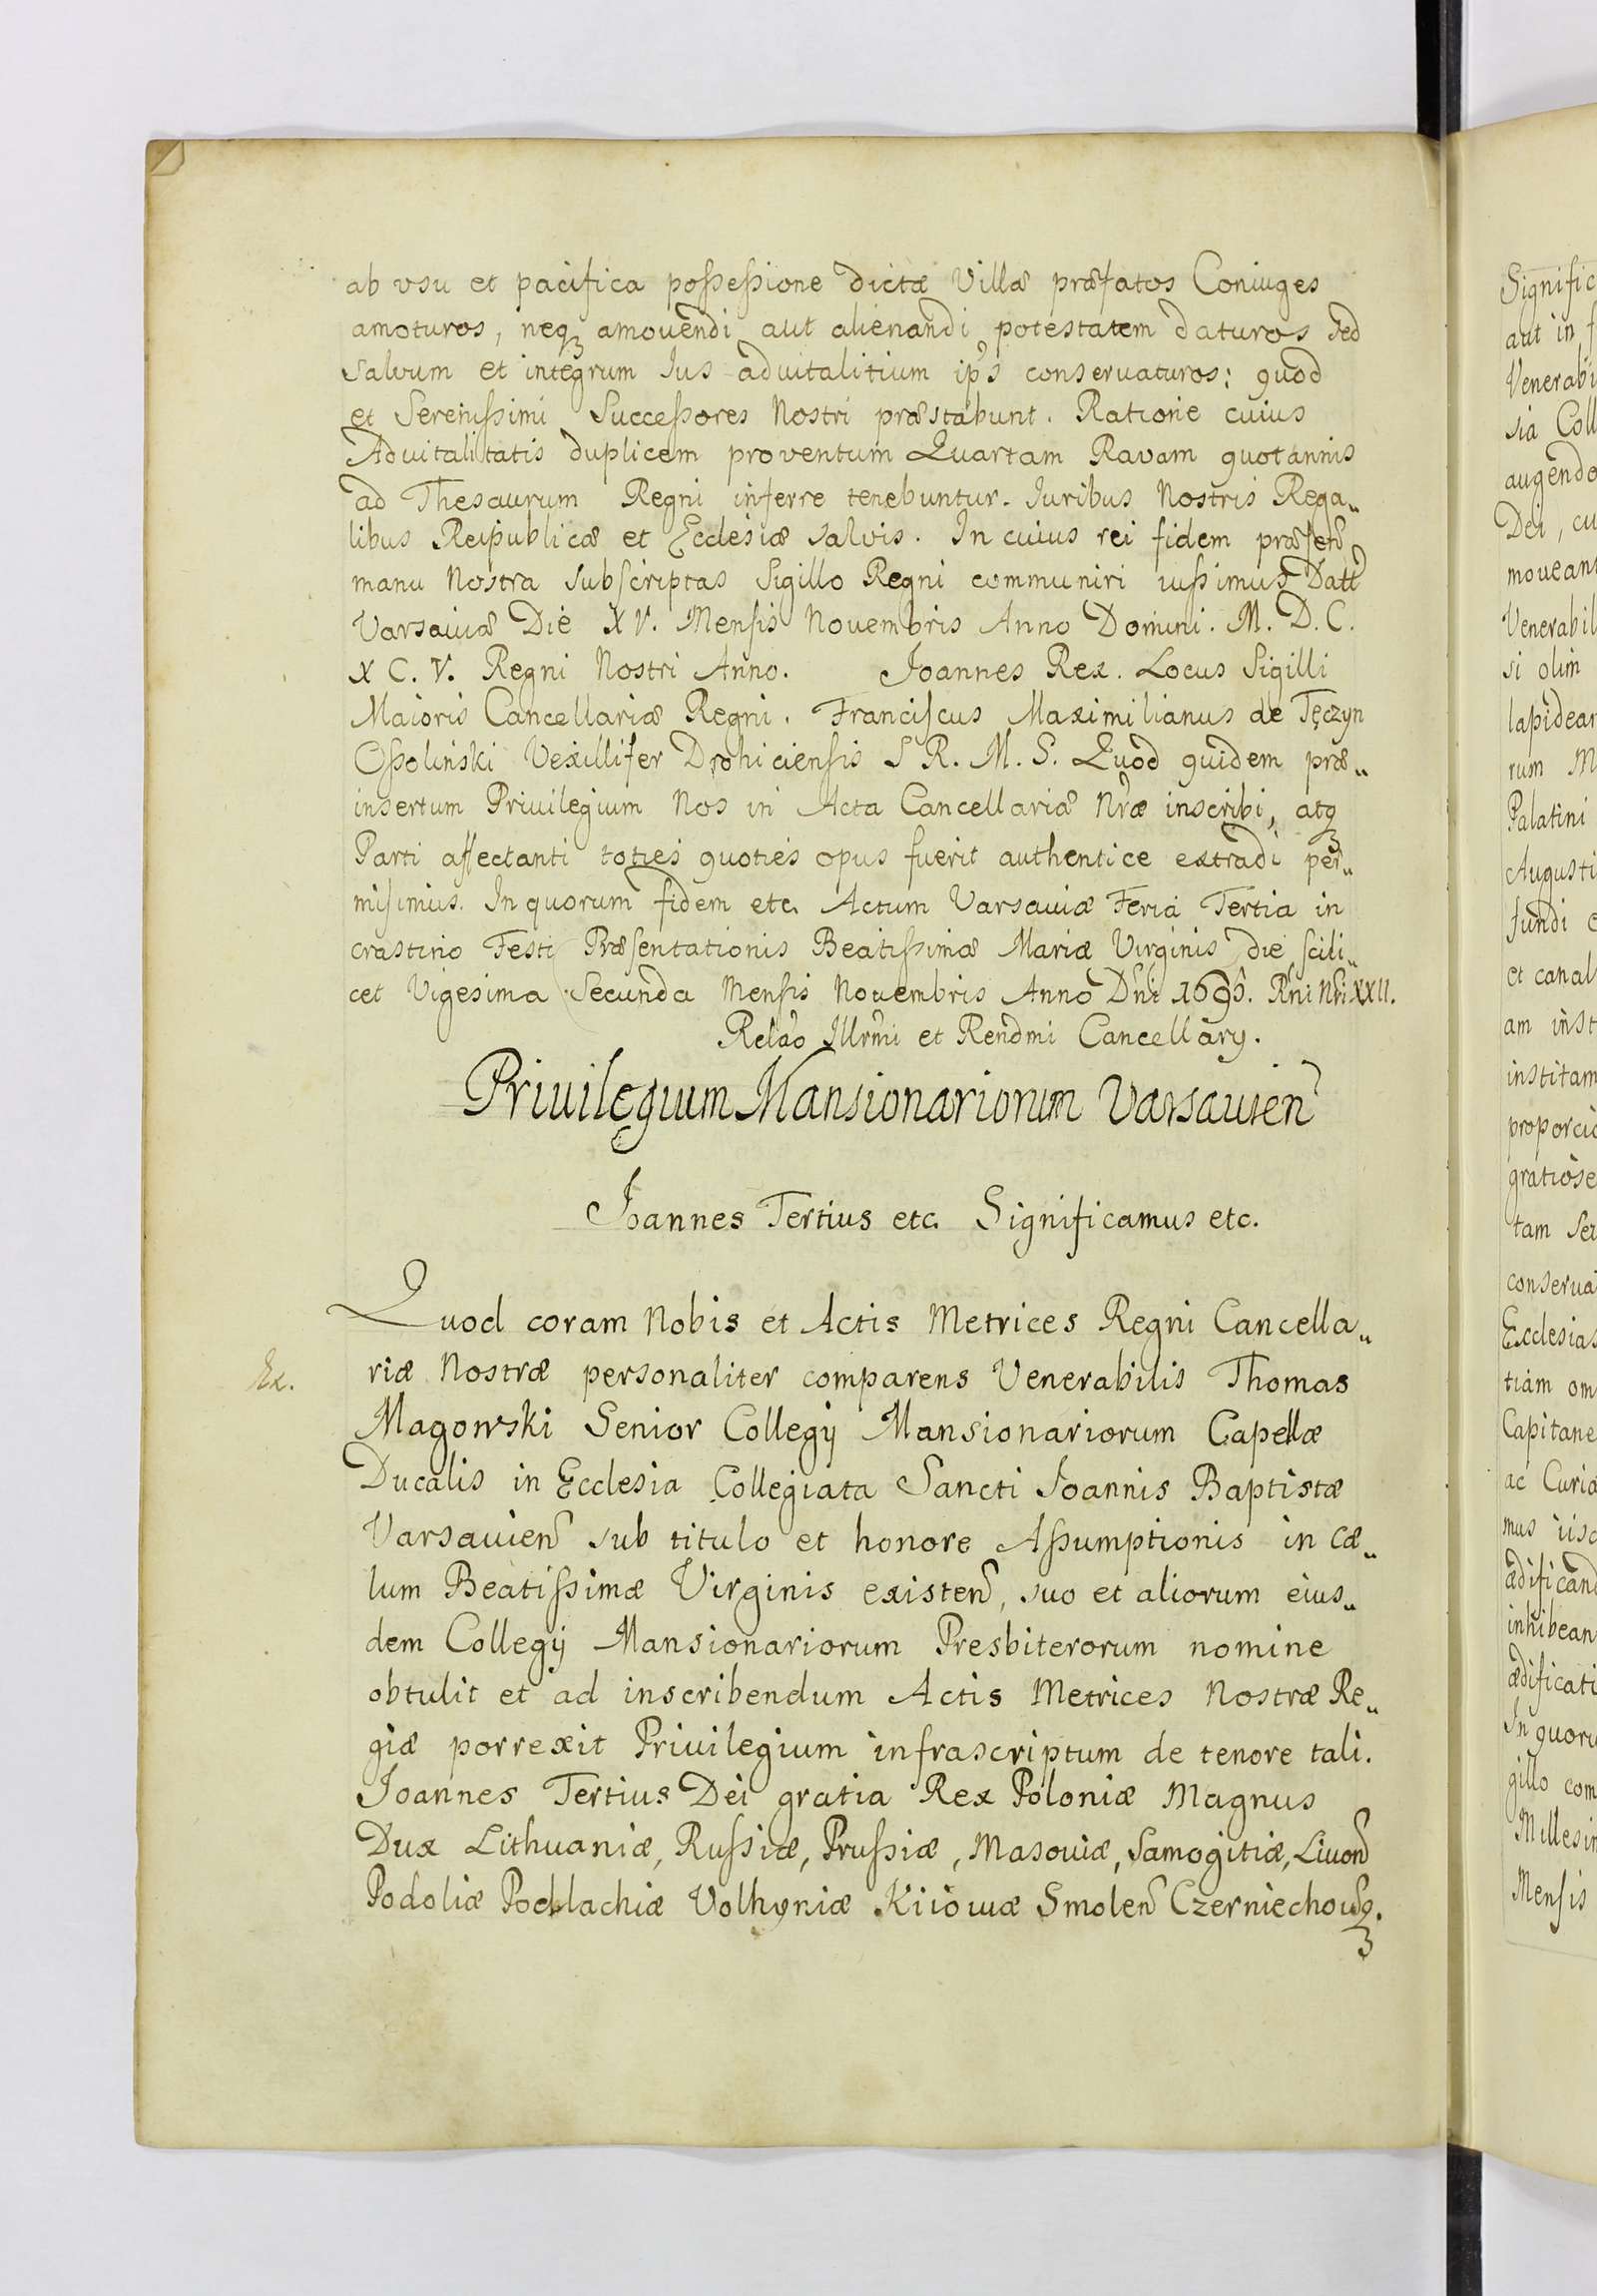 ab vsu et pacifica poſseſsione dictæ Villæ præfatos Coniuges
amoturos, neqꝫ amouendi aut alienandi potestatem daturos sed
salvum et integrum Ius aduitalitium ip̃s conseruaturos: quod
et Sereniſsimi Succeſsores Nostri præstabunt. Ratione cuius
Aduitalitatis duplicem proventum Quartam Ravam quotannis
ad Thesaurum Regni inferre tenebuntur. Iuribus Nostris Rega„
libus Reipublicæ et Ecclesiæ salvis. In cuius rei fidem præſen̄
manu Nostra subſcriptas Sigillo Regni communiri iuſsimus Datt
Varsauiæ Die XV. Menſis Nouembris Anno Domini. M. D. C.
X C. V. Regni Nostri Anno. Joannes Rex. Locus Sigilli
Maioris Cancellariæ Regni. Franciſcus Maximilianus de Tęczyn
Oſsolinski Vexillifer Drohicienſis S R. M. S. Quod quidem præ„
insertum Priuilegium Nos in Acta Cancellariæ Nr̃æ inscribi, atqꝫ
Parti affectanti toties quoties opus fuerit authentice extradi per„
miſimus. In quorum fidem etc. Actum Varsauiæ Feria Tertia in
crastino Festi Præſentationis Beatiſsimæ Mariæ Virginis die ſcili„
cet Vigesima Secunda Menſis Nouembris Anno Dñi 1695. Rñi Nr̃i XXII.
Relãо Illr̃mi et Rendmi Cancellarÿ.
Priuilegium Mansionariorum Varsauien̄
Joannes Tertius etc. Significamus etc.
Quod coram Nobis et Actis Metrices Regni Cancella„
Ex.
riæ Nostræ personaliter comparens Venerabilis Thomas
Magowski Senior Collegÿ Mansionariorum Capellæ
Ducalis in Ecclesia Collegiata Sancti Joannis Baptistæ
Varsauien̄ sub titulo et honore Aſsumptionis in Cæ„
lum Beatiſsimæ Virginis existen̄, suo et aliorum eius„
dem Collegÿ Mansionariorum Presbiterorum nomine
obtulit et ad inscribendum Actis Metrices Nostræ Re„
giæ porrexit Priuilegium infrascriptum de tenore tali.
Joannes Tertius Dei gratia Rex Poloniæ Magnus
Dux Lithuaniæ, Ruſsiæ, Pruſsiæ, Masouiæ, Samogitiæ, Liuon̄
Podoliæ Podlachiæ Volhyniæ Kiiouiæ Smolen̄ Czerniechou̅qꝫ.
Signific
aut in f
Venerabi
sia Coll
augendo
Dei, cu
moueant
Venerabil
si olim
lapidear
rum M
Palatini
Augusti
fundi e
et canal
am inst
institam
proporcio
gratiose
tam Ser
conserua
Ecclesias
tiam om
Capitane
ac Curiæ
mus iisd
ædificand
inhibean
ædificati
In quoru
gillo com
Millesim
Mensis